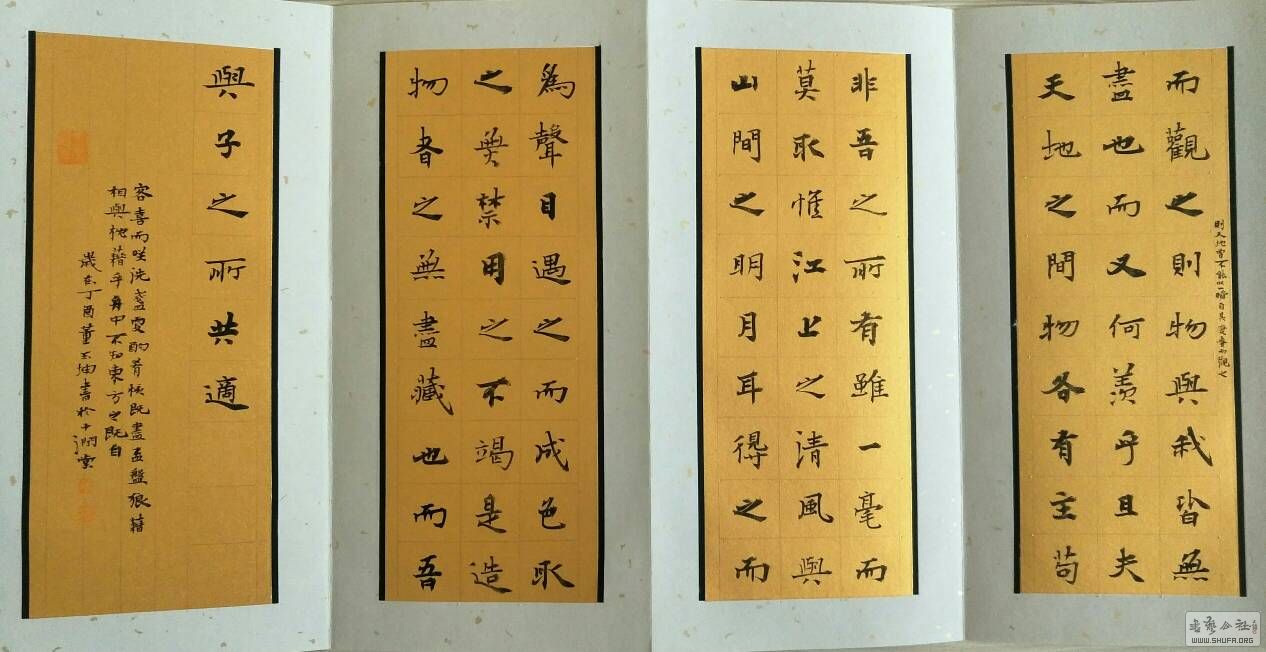 則天地曾不能以一瞬自其變者而觀之
而觀之則物與我皆無
盡也而又何羨乎且夫
天地之間物各有主苟
非吾之所有雖一毫而
莫取惟江上之清風與
山間之明月耳得之而
為聲目遇之而成色取
之無禁用之不竭是造
物者之無盡藏也而吾
與子之所共適
客喜而咲洗盞更酌肴核既盡盃盤狼藉
相與枕藉乎舟中不知東方之既白
歲在丁酉董玉坤書於
书艺公社
WWW.SHUFA.ORG